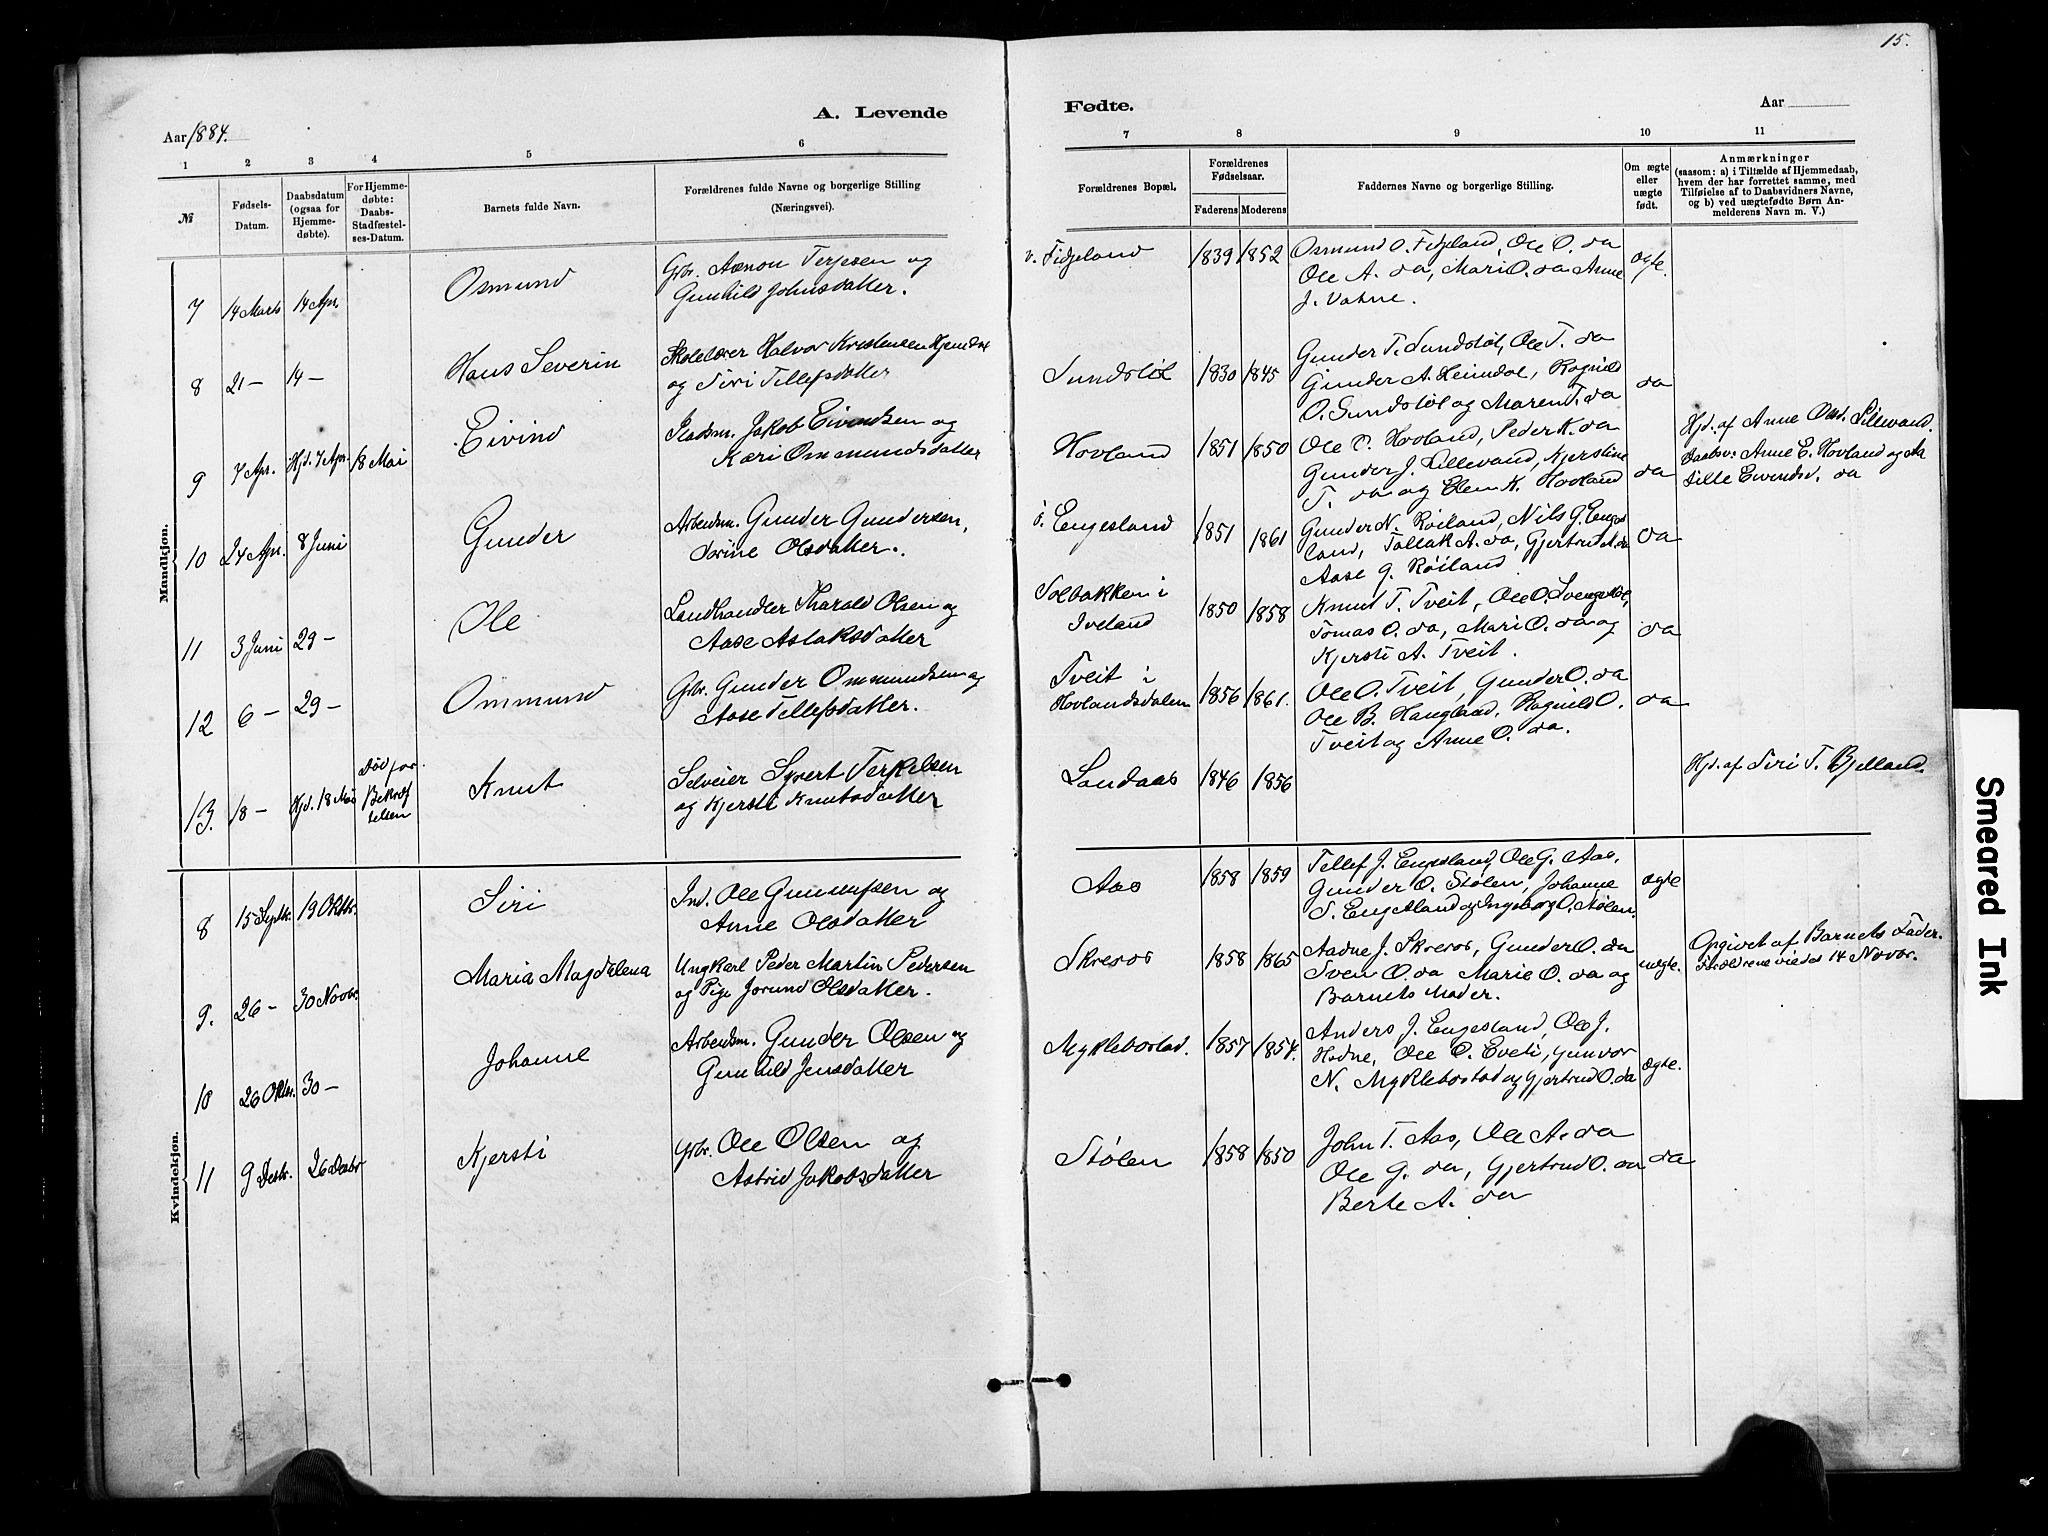 15.
A. Levende
Fødte.
Aar 1884.
Aar
1 2 3 4 5 6 7 8 9 10 11
№
Fødsels-Datum.
Daabsdatum (ogsaa for Hjemme-døbte).
For Hjemme-døbte: Daabs-Stadfæstel-ses-Datum.
Barnets fulde Navn.
Forældrenes fulde Navne og borgerlige Stilling (Næringsvei).
Forældrenes Bopæl.
Forældrenes Fødselsaar.
Faderens Moderens
Faddernes Navne og Stilling.
Om ægte eller uægte født.
Anmærkninger
(saasom: a) i Tilfælde af Hjemmedaab,
hvem der har forrettet samme, med
Tilføielse af to Daabsvidners Navne,
og b) ved uægtefødte Børn An-
melderens Navn m. V.)
Mandkjøn.
7 14 Marts 14 Apr. Osmund Gbr. Aanon Terjesen og
Gunhild Johnsdatter.
v. Fidjeland 1839 1852 Osmund O. Fidjeland, Ole O. da
Ole A. da, Mari O. da Anne
J. Vatne.
ægte.
8 21 — 14 — Hans Severin Skolelærer Halvor Kristensen
og Siri Tellefsdatter
Sundstøl 1830 1845 Gunder T. Sundstøl, Ole T. da
Gunder A. Heimdal, Ragnild
O. Sundstøl og Maren T. da
da
9 7 Apr. Hjd. 7 Apr. 18 Mai Eivind Pladsm. Jakob Eivindsen og
Kari Ommundsdatter
Hovland 1851 1850 Ole O. Hovland, Peder K. da
Gunder J. Lillevand, Kjerstine
T. da og Elen K. Hovland
da
Hjd. af Anne Lillevand.
Daabsv: Anne E. Hovland og
Eivendsd. da
10 24 Apr. 8 Juni Gunder Arbeidsm. Gunder Gundersen,
Serine Olsdatter.
Engesland 1851 1861 Gunder N. Røiland, Nils G. Enges
land, Tallak A. da, Gjertrud
Aase G. Røiland
da
11 3 Juni 29 — Ole Landhandler Tharald Olsen og
Aase Aslaksdatter
Solbakken i
Iveland
1850 1858 Knut T. Tveit, Ole O.
Tomas O. da, Mari O. da og
Kjersti A. Tveit.
da
12 6 — 29 — Ommund Gbr. Gunder Ommundsen og
Aase Tellefsdatter.
Tveit i
Hovlandsdalen
1856 1861. Ole O. Tveit, Gunder O. da
Ole B. Haugland, Ragnild O.
Tveit og Anne O. da.
da
13. 18 — Hjd. 18 Mai Død før
Bekræf
telsen
Knut Selveier Syvert Terkelsen
og Kjersti Knutsdatter
Landaas 1846 1856
Hjd. af Siri T. Bjelland.
Kvindekjøn.
8 15 Septbr. 19 Oktbr. Siri Ind. Ole Gunnufsen og
Anne Olsdatter
Aas 1858 1859 Tellef J. Engesland, Ole G. Aas,
Gunder O. Stølen, Johanne
S. Engesland og Ingeborg O. Stølen.
ægte
9. 26 — 30 Novbr. Maria Magdalena Ungkarl Peder Martin Pedersen
og Pige Jorund Olsdatter.
Skreros 1858 1865 Aadne J. Skreros, Gunder O. da
Sven O. da Marie O. da og
Barnets Moder.
uægte.
Opgivet af Barnets Fader.
Forældrene viedes 14 Novbr.
10 26 Oktbr. 30 — Johanne Arbeidsm. Gunder Olsen og
Gunhild Jensdatter
Myklebostad. 1857 1854. Anders J. Engesland, Ole J.
Hodne, Ole O. Eveti, Gunvor
N. Myklebostad og Gjertrud O. da
ægte.
11 9 Decbr. 26 Decbr Kjersti Gbr. Ole Olsen og
Astrid Jakobsdatter
Stølen 1858 1850 John T. Aas, Ole A. da
Ole G. da, Gjertrud O. da
Berte A. da
da
Smeared Ink